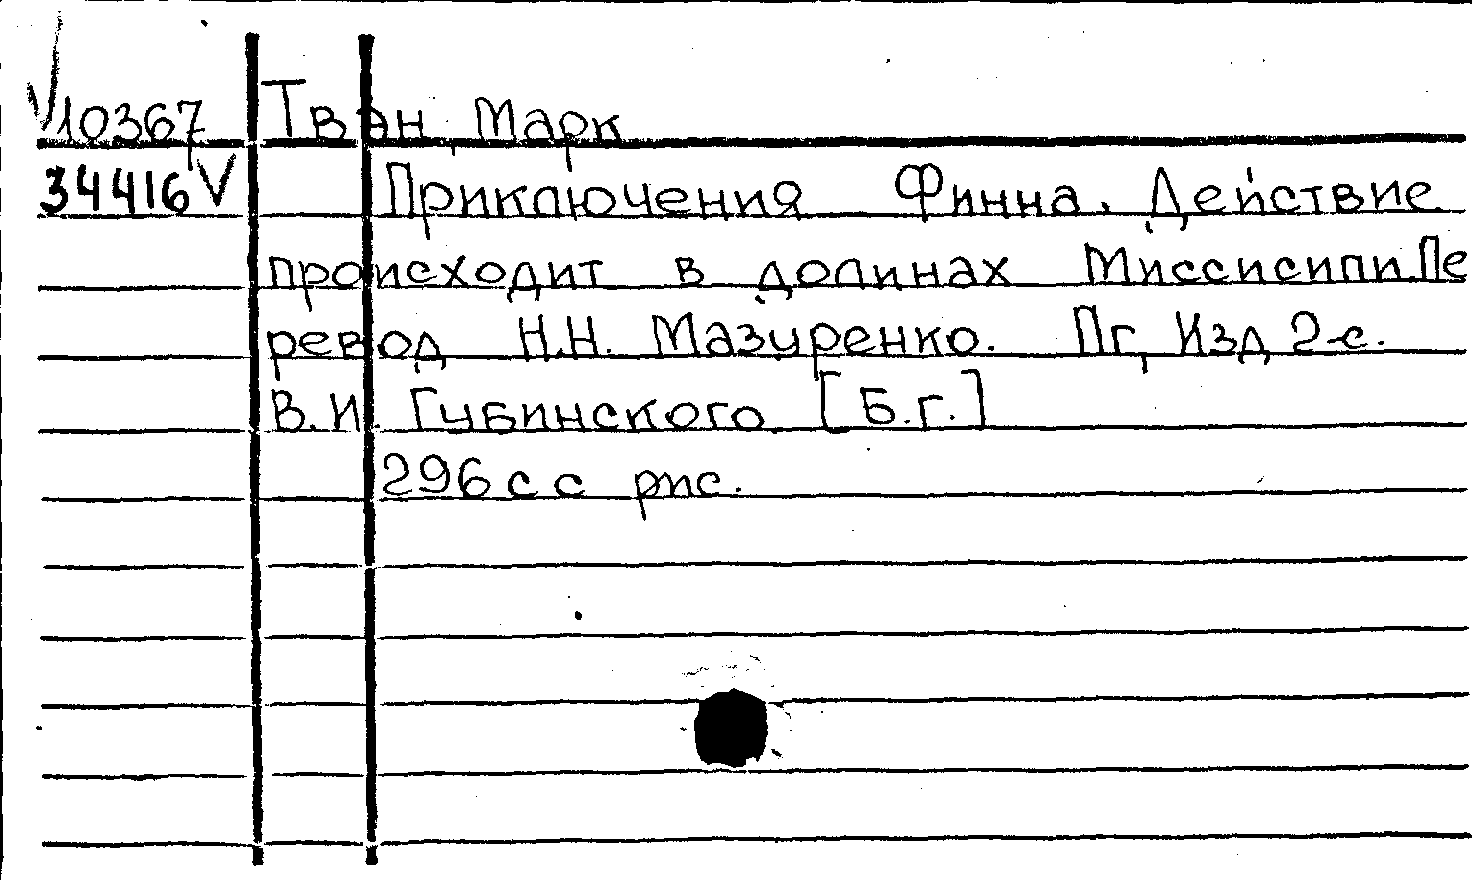 V10367 Твэн, Марк
34416V Приключения Финна. Действие
происходит в долинах Миссисипи Пе
ревод Н.Н. Мазуренко. Пг, Изд 2-е.
В.И. Губинского [Б.г.]
296 с с рис.